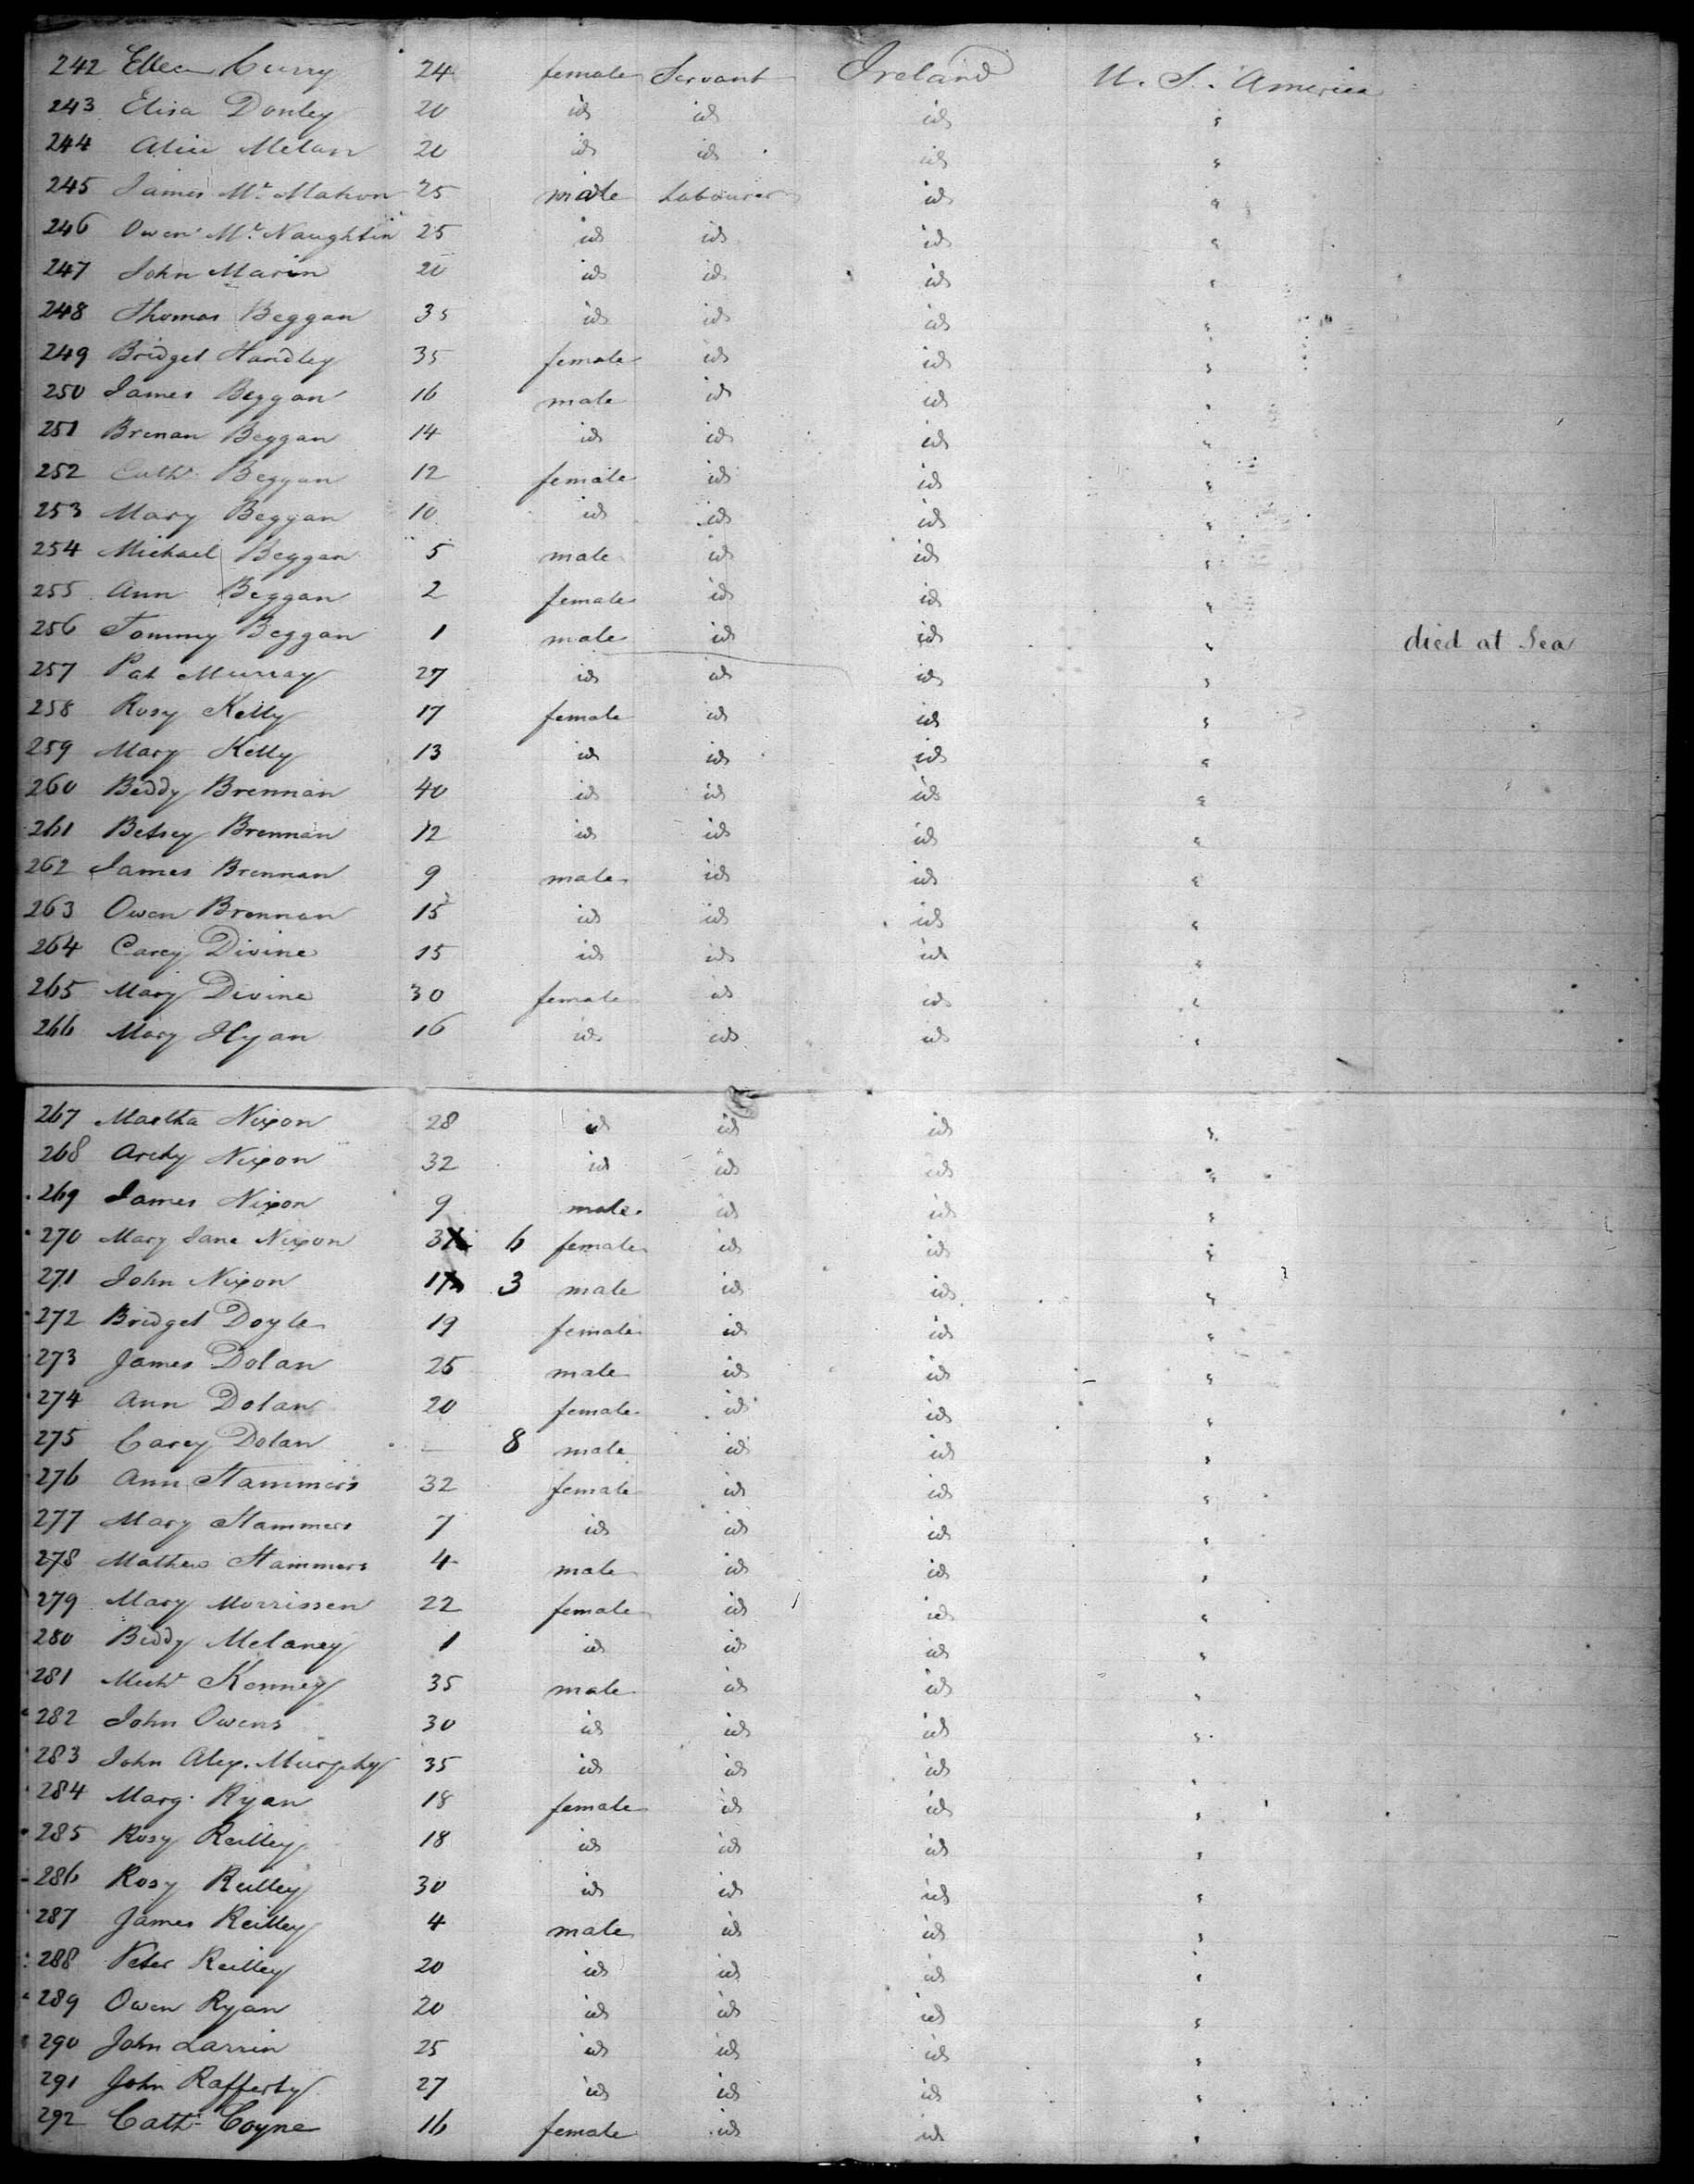 242 Ellen Curry 24 female Servant Ireland U. S. America
243 Elisa Donley 20 id id id "
244 Alice Melan 20 id id id "
245 James Mc. Mahon 25 male Labourer id "
246 Owen Mc. Naughtin 25 id id id "
247 John Marin 20 id id id "
248 Thomas Beggan 35 id id id "
249 Bridget Handley 35 female id id "
250 James Beggan 16 male id id "
251 Brenan Beggan 14 id id id "
252 Cathe. Beggan 12 female id id "
253 Mary Beggan 10 id id id "
254 Michael Beggan 5 male id id "
255 Ann Beggan 2 female id id "
256 Tommy Beggan 1 male id id " died at Sea
257 Pat Murray 27 id id id "
258 Rosy Kelly 17 female id id "
259 Mary Kelly 13 id id id "
260 Beddy Brennan 40 id id id "
261 Betsey Brennan 12 id id id "
262 James Brennan 9 male id id "
263 Owen Brennan 15 id id id "
264 Carey Divine 15 id id id "
265 Mary Divine 30 female id id "
266 Mary Hyan 16 id id id "
267 Martha Nixon 28 id id id "
268 Archy Nixon 32 id id id "
269 James Nixon 9 male id id "
270 Mary Jane Nixon 6 female id id "
271 John Nixon 3 male id id "
272 Bridget Doyle 19 female id id "
273 James Dolan 25 male id id "
274 Ann Dolan 20 female id id "
275 Carey Dolan — 8 male id id "
276 Ann Stammers 32 female id id "
277 Mary Stammers 7 id id id "
278 Mathew Stammers 4 male id id "
279 Mary Morrissen 22 female id id "
280 Biddy Melaney 1 id id id "
281 Michl Kenney 35 male id id "
282 John Owens 30 id id id "
283 John Alex. Murphy 35 id id id "
284 Marg. Ryan 18 female id id "
285 Rosy Reilley 18 id id id "
286 Rosy Reilley 30 id id id "
287 James Reilley 4 male id id "
288 Peter Reilley 20 id id id "
289 Owen Ryan 20 id id id "
290 John Larrin 25 id id id "
291 John Rafferty 27 id id id "
292 Cath. Coyne 16 female id id "